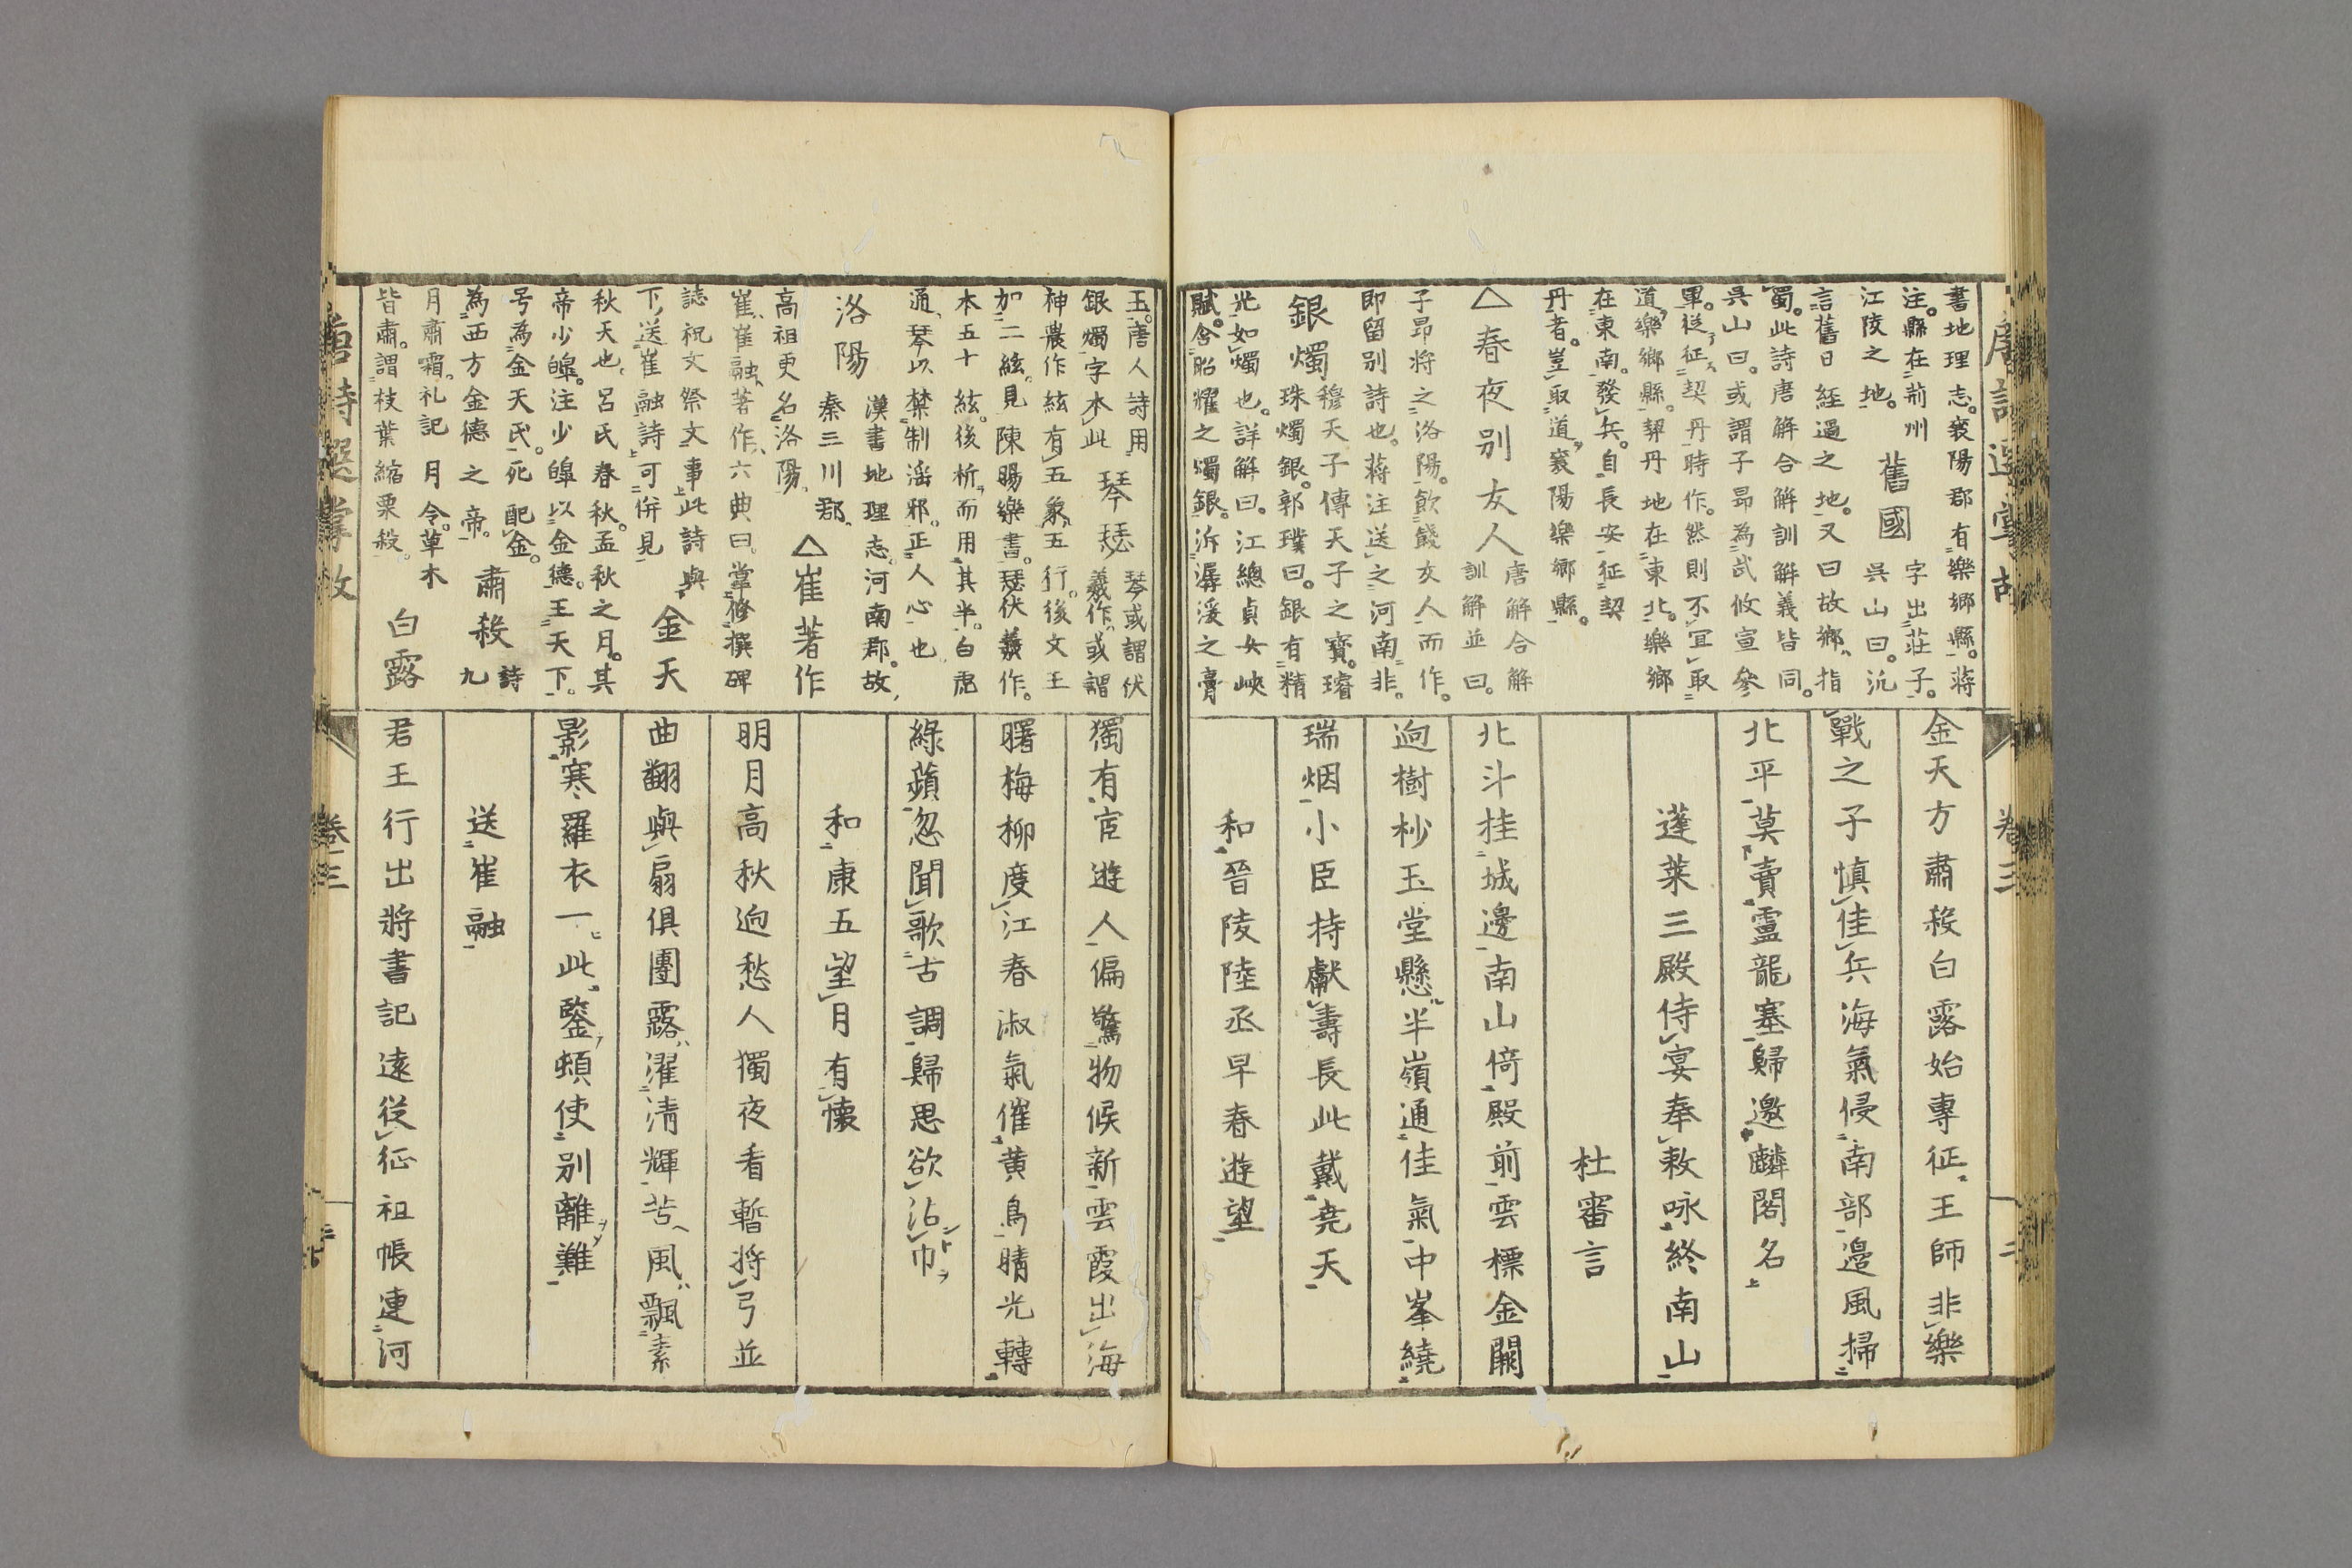 書地理志。襄陽郡有樂鄉縣。蔣
注。縣在荊州
江陵之地。
舊國
字出莊子。
吳山曰。沅
言舊日經過之地。又曰故鄉指
蜀。此詩唐解合解訓解義皆同。
吳山曰。或謂子昂為武攸宣參
軍。從征契丹時作。然則不宜取
道樂鄉縣。契丹地在東北。樂鄉
在東南。發兵。自長安征契
丹者。豈取道襄陽樂鄉縣。
△春夜別友人
唐解合解
訓解並曰。
子昂將之洛陽。飲餞友人而作。
即留別詩也。蔣注送之河南非。
銀燭
穆天子傳天子之寶。璿
珠燭銀。郭璞曰。銀有精
光如燭也。詳解曰。江總貞女峽
賦。含昭耀之燭銀。泝潺湲之膏
金天方肅殺白露始專征王師非樂
戰之子慎佳兵海氣侵南部邊風掃
北平莫賣盧龍塞歸邀麟閣名
蓬萊三殿侍宴奉敕咏終南山
杜審言
北斗挂城邊南山倚殿前雲標金闕
迥樹杪玉堂懸半嶺通佳氣中峯繞
瑞烟小臣持獻壽長此戴堯天
和晉陵陸丞早春遊望
玉。唐人詩用
銀燭字本此
琴瑟
琴或謂伏
羲作。或謂
神農作絃有五象五行。後文王
加二絃。見陳暘樂書。瑟伏羲作。
本五十絃。後析而用其半。白虎
通琴以禁制淫邪。正人心也
洛陽
漢書地理志。河南郡。故
秦三川郡、
高祖更名洛陽、
△崔著作
崔、崔融、著作、六典曰。掌修撰碑
誌祝文祭文事此詩與
下送崔融詩可併見
金天
秋天也。呂氏春秋。孟秋之月。其
帝少皞。注少皞以金德。王天下。
号為金天氏。死配金。
為西方金德之帝。
肅殺
詩
九
月肅霜。礼記月令。草木
皆肅。謂枝葉縮栗殺。
白露
獨有宦遊人偏驚物候新雲霞出海
曙梅柳度江春淑氣催黃鳥晴光轉
綠蘋忽聞歌古調歸思欲沾巾
和康五望月有懷
明月高秋迥愁人獨夜看暫將弓並
曲翻與扇俱團露濯清輝苦風飄素
影寒羅衣一此鑒頓使別離難
送崔融
君王行出將書記遠從征祖帳連河
唐詩選掌故
卷三